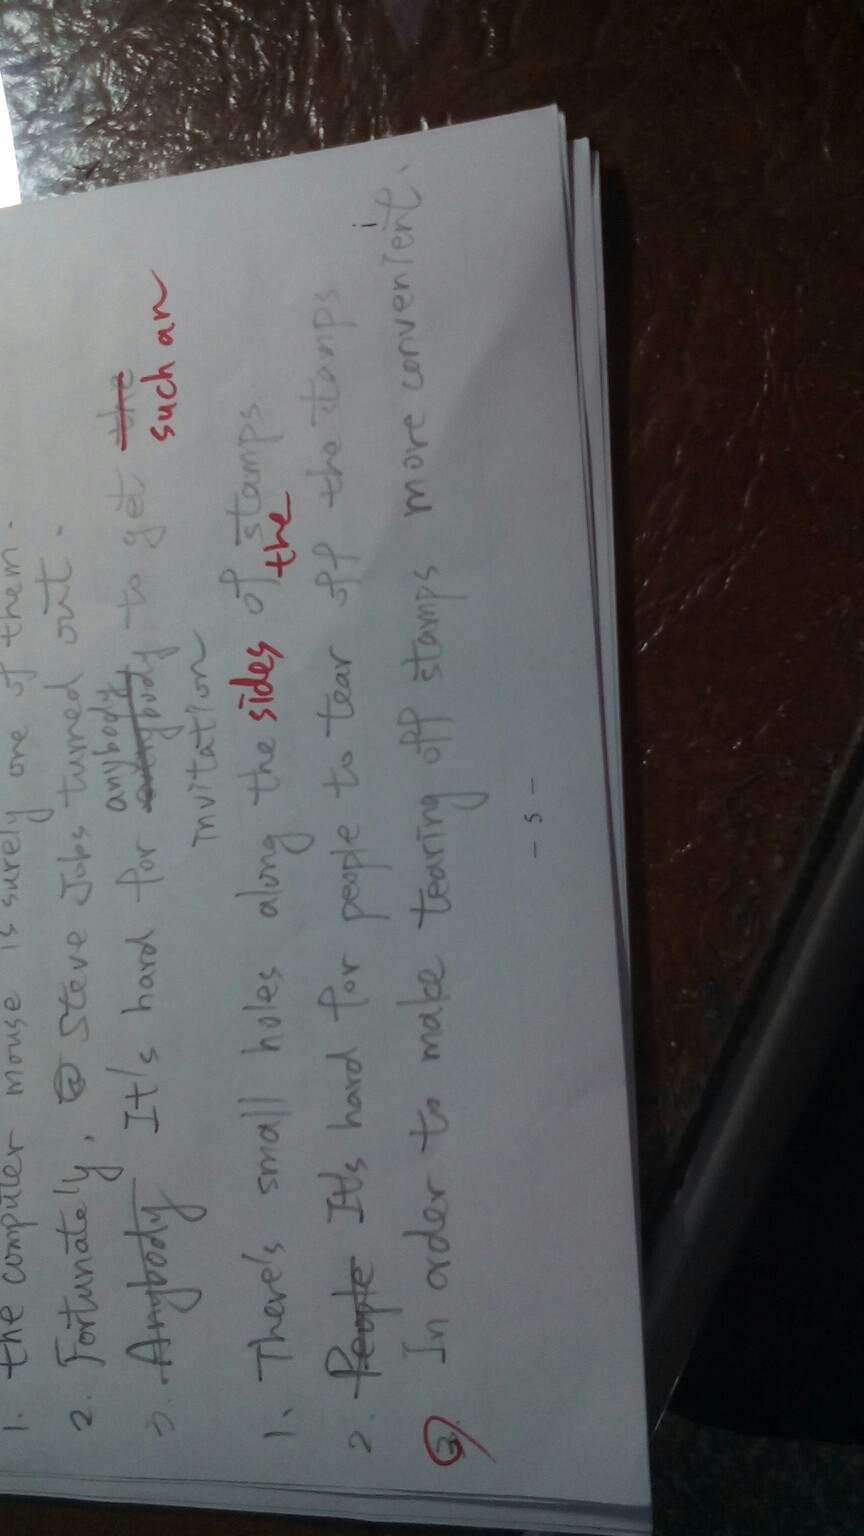 1. the computer mouse is surely one of them.
2. Fortunately, Steve Jobs turned out.
anybody
3. Anybody It's hard for to get the
such an
invitation
1. There's small holes along the sides of stamps.
the
2. People It's hard for people to tear off the stamps
3. In order to make tearing off stamps more convenient.
- 5 -